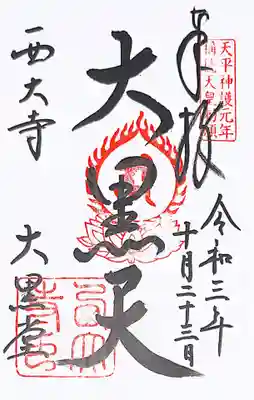 奉拝
天平神護元年
令和三年
十月二十三日
大黒天
西大寺
大黒堂